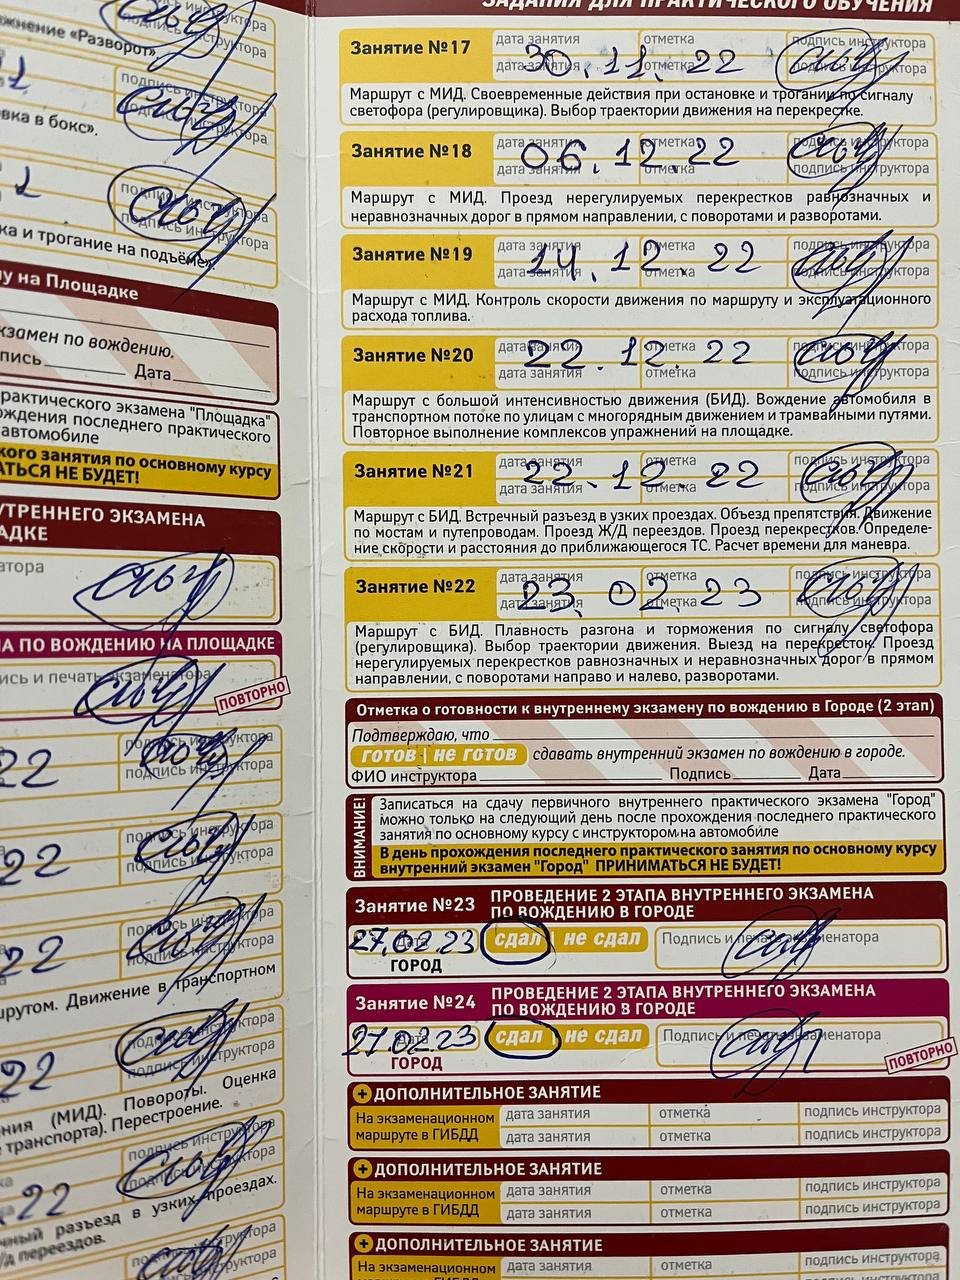 жнение «Разворот»
подпись инструктора
подпись инструктора
подпись инструктора
вка в бокс».
подпись инструктора
подпись инструктора
ка и трогание на подъёме».
у на Площадке
кзамен по вождению.
пись Дата
рактического экзамена "Площадка"
ождения последнего практического
автомобиле
кого занятия по основному курсу
АТЬСЯ НЕ БУДЕТ!
УТРЕННЕГО ЭКЗАМЕНА
АДКЕ
атора
НА ПО ВОЖДЕНИЮ НА ПЛОЩАДКЕ
ись и печать экзаменатора
ПОВТОРНО
22 подпись инструктора
подпись инструктора
22 подпись инструктора
подпись инструктора
22 подпись инструктора
подпись инструктора
шрутом. Движение в транспортном
22 подпись инструктора
подпись инструктора
ния (МИД). Повороты. Оценка
транспорта). Перестроение.
22 подпись инструктора
подпись инструктора
чный разъезд в узких проездах.
/д переездов.
подпись инструктора
ЗАДАНИЯ ДЛЯ ПРАКТИЧЕСКОГО ОБУЧЕНИЯ
Занятие №17 дата занятия отметка подпись инструктора
30.11.22
дата занятия отметка подпись инструктора
Маршрут с МИД. Своевременные действия при остановке и трогании по сигналу
светофора (регулировщика). Выбор траектории движения на перекрестке.
Занятие №18 дата занятия отметка подпись инструктора
06.12.22
дата занятия отметка подпись инструктора
Маршрут с МИД. Проезд нерегулируемых перекрестков равнозначных и
неравнозначных дорог в прямом направлении, с поворотами и разворотами.
Занятие №19 дата занятия отметка подпись инструктора
14.12.22
дата занятия отметка подпись инструктора
Маршрут с МИД. Контроль скорости движения по маршруту и эксплуатационного
расхода топлива.
Занятие №20 дата занятия отметка подпись инструктора
22.12.22
дата занятия отметка подпись инструктора
Маршрут с большой интенсивностью движения (БИД). Вождение автомобиля в
транспортном потоке по улицам с многорядным движением и трамвайными путями.
Повторное выполнение комплексов упражнений на площадке.
Занятие №21 дата занятия отметка подпись инструктора
22.12.22
дата занятия отметка подпись инструктора
Маршрут с БИД. Встречный разъезд в узких проездах. Объезд препятствия. Движение
по мостам и путепроводам. Проезд Ж/Д переездов. Проезд перекрестков. Определе-
ние скорости и расстояния до приближающегося ТС. Расчет времени для маневра.
Занятие №22 дата занятия отметка подпись инструктора
23.02.23
дата занятия отметка подпись инструктора
Маршрут с БИД. Плавность разгона и торможения по сигналу светофора
(регулировщика). Выбор траектории движения. Выезд на перекресток. Проезд
нерегулируемых перекрестков равнозначных и неравнозначных дорог в прямом
направлении, с поворотами направо и налево, разворотами.
Отметка о готовности к внутреннему экзамену по вождению в Городе (2 этап)
Подтверждаю, что
ГОТОВ | НЕ ГОТОВ сдавать внутренний экзамен по вождению в городе.
ФИО инструктора Подпись Дата
ВНИМАНИЕ!
Записаться на сдачу первичного внутреннего практического экзамена "Город"
можно только на следующий день после прохождения последнего практического
занятия по основному курсу с инструктором на автомобиле
В день прохождения последнего практического занятия по основному курсу
внутренний экзамен "Город" ПРИНИМАТЬСЯ НЕ БУДЕТ!
Занятие №23 ПРОВЕДЕНИЕ 2 ЭТАПА ВНУТРЕННЕГО ЭКЗАМЕНА
ПО ВОЖДЕНИЮ В ГОРОДЕ
27.02.23 Дата сдал | не сдал Подпись и печать экзаменатора
ГОРОД
Занятие №24 ПРОВЕДЕНИЕ 2 ЭТАПА ВНУТРЕННЕГО ЭКЗАМЕНА
ПО ВОЖДЕНИЮ В ГОРОДЕ
27.02.23 Дата сдал | не сдал Подпись и печать экзаменатора
ГОРОД
ПОВТОРНО
+ ДОПОЛНИТЕЛЬНОЕ ЗАНЯТИЕ
На экзаменационном дата занятия отметка подпись инструктора
маршруте в ГИБДД дата занятия отметка подпись инструктора
+ ДОПОЛНИТЕЛЬНОЕ ЗАНЯТИЕ
На экзаменационном дата занятия отметка подпись инструктора
маршруте в ГИБДД дата занятия отметка подпись инструктора
+ ДОПОЛНИТЕЛЬНОЕ ЗАНЯТИЕ
На экзаменационном дата занятия отметка подпись инструктора